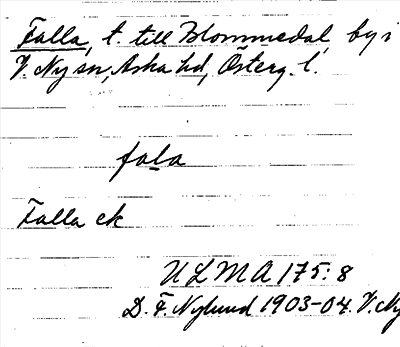 Falla, t. till Blommedal, by i
V. Ny sn, Aska hd, Österg. l.
fala
Falla ek
ULMA 175:8
D. F. Nylund 1903-04. V. Ny